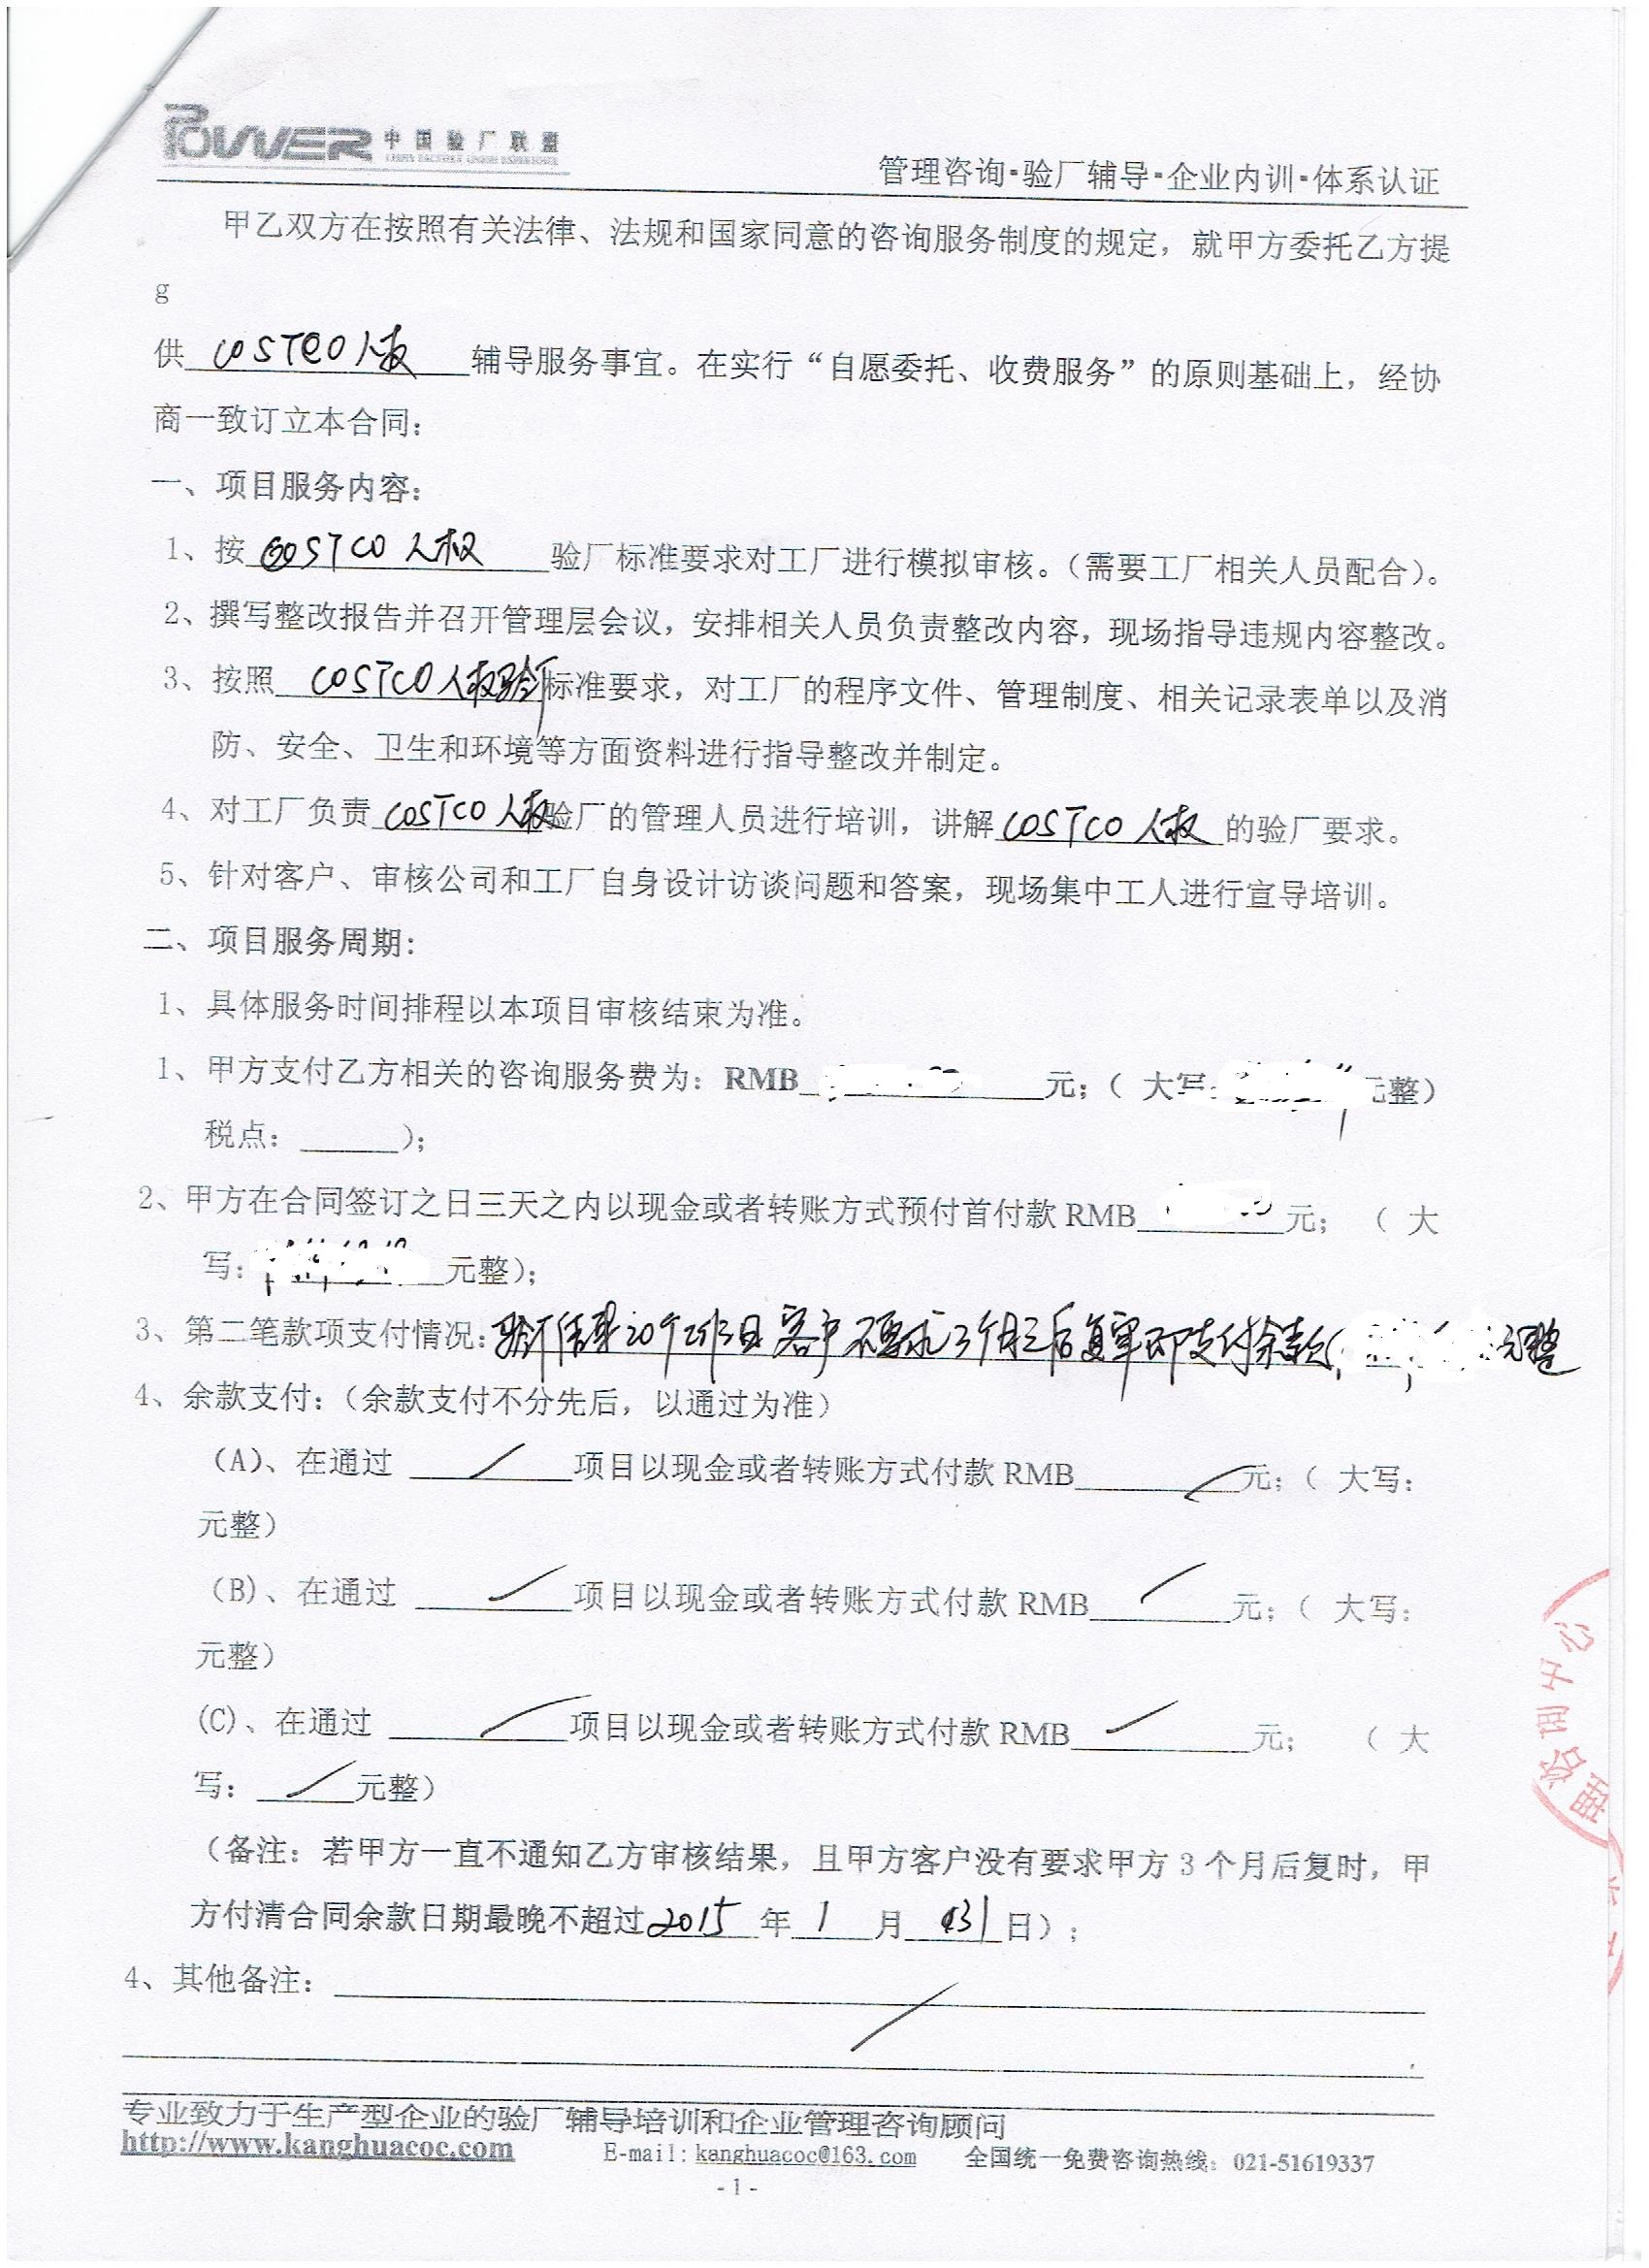 POWER 中国验厂联盟
管理咨询·验厂辅导·企业内训·体系认证
甲乙双方在按照有关法律、法规和国家同意的咨询服务制度的规定，就甲方委托乙方提
g
供 COSTCO 人权 辅导服务事宜。在实行“自愿委托、收费服务”的原则基础上，经协
商一致订立本合同：
一、项目服务内容：
1、按 COSTCO 人权 验厂标准要求对工厂进行模拟审核。（需要工厂相关人员配合）。
2、撰写整改报告并召开管理层会议，安排相关人员负责整改内容，现场指导违规内容整改。
3、按照 COSTCO 人权验厂 标准要求，对工厂的程序文件、管理制度、相关记录表单以及消
防、安全、卫生和环境等方面资料进行指导整改并制定。
4、对工厂负责 COSTCO 人权 验厂的管理人员进行培训，讲解 COSTCO 人权 的验厂要求。
5、针对客户、审核公司和工厂自身设计访谈问题和答案，现场集中工人进行宣导培训。
二、项目服务周期：
1、具体服务时间排程以本项目审核结束为准。
1、甲方支付乙方相关的咨询服务费为：RMB 元；（ 大写： 元整）
税点：______）；
2、甲方在合同签订之日三天之内以现金或者转账方式预付首付款 RMB 元； （ 大
写： 元整）；
3、第二笔款项支付情况：验厂结束20个工作日客户不要求3个月之后复审即支付余款 元整
4、余款支付：（余款支付不分先后，以通过为准）
（A）、在通过 / 项目以现金或者转账方式付款 RMB / 元；（ 大写：
元整）
（B）、在通过 / 项目以现金或者转账方式付款 RMB / 元；（ 大写：
元整）
（C）、在通过 / 项目以现金或者转账方式付款 RMB / 元； （ 大
写： / 元整）
（备注：若甲方一直不通知乙方审核结果，且甲方客户没有要求甲方 3 个月后复时，甲
方付清合同余款日期最晚不超过 2015 年 1 月 31 日）；
4、其他备注： /
专业致力于生产型企业的验厂辅导培训和企业管理咨询顾问
http://www.kanghuacoc.com E-mail：kanghuacoc@163.com 全国统一免费咨询热线：021-51619337
- 1 -
理咨询中心